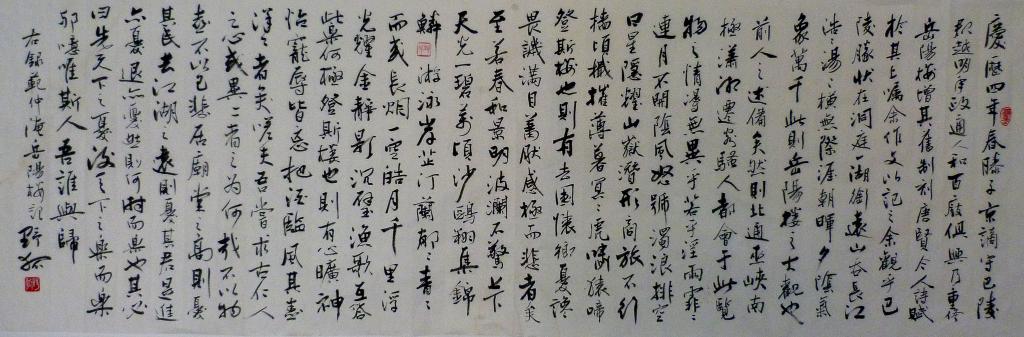 慶曆四年春滕子京謫守巴陵
郡越明年政通人和百廢俱興乃重修
岳陽樓增其舊制刻唐賢今人詩賦
於其上囑余作文以記之余觀乎巴
陵勝狀在洞庭一湖銜遠山吞長江
浩湯之橫無際涯朝暉夕陰氣
象萬千此則岳陽樓之大觀也
前人之述備矣然則北通巫峽南
極瀟湘遷客騷人都會于此覽
物之情得無異乎若乎淫雨霏〻
連月不開陰風怒號濁浪排空
日星隱耀山嶽潛形商旅不行
檣傾楫摧薄暮冥〻虎嘯猿啼
登斯樓也則有去國懷鄉憂讒
畏譏滿目蕭然感極而悲者矣
至若春和景明波瀾不驚上下
天光一碧萬頃沙鷗翔集錦
鱗游泳岸芷汀蘭郁〻青〻
而或長烟一空皓月千里浮
光耀金靜影沉璧漁歌互答
此樂何極登斯樓也則有心曠神
怡寵辱皆忘把酒臨風其喜
洋〻者矣嗟夫吾嘗求古仁人
之心或異二者之為何哉不以物
喜不以己悲居廟堂之高則憂
其民去江湖之遠則憂其君是進
亦憂退亦憂然則何時而樂也其必
曰先天下之憂後天下之樂而樂
耶噫唯斯人吾誰與歸
右錄範仲淹岳陽樓記